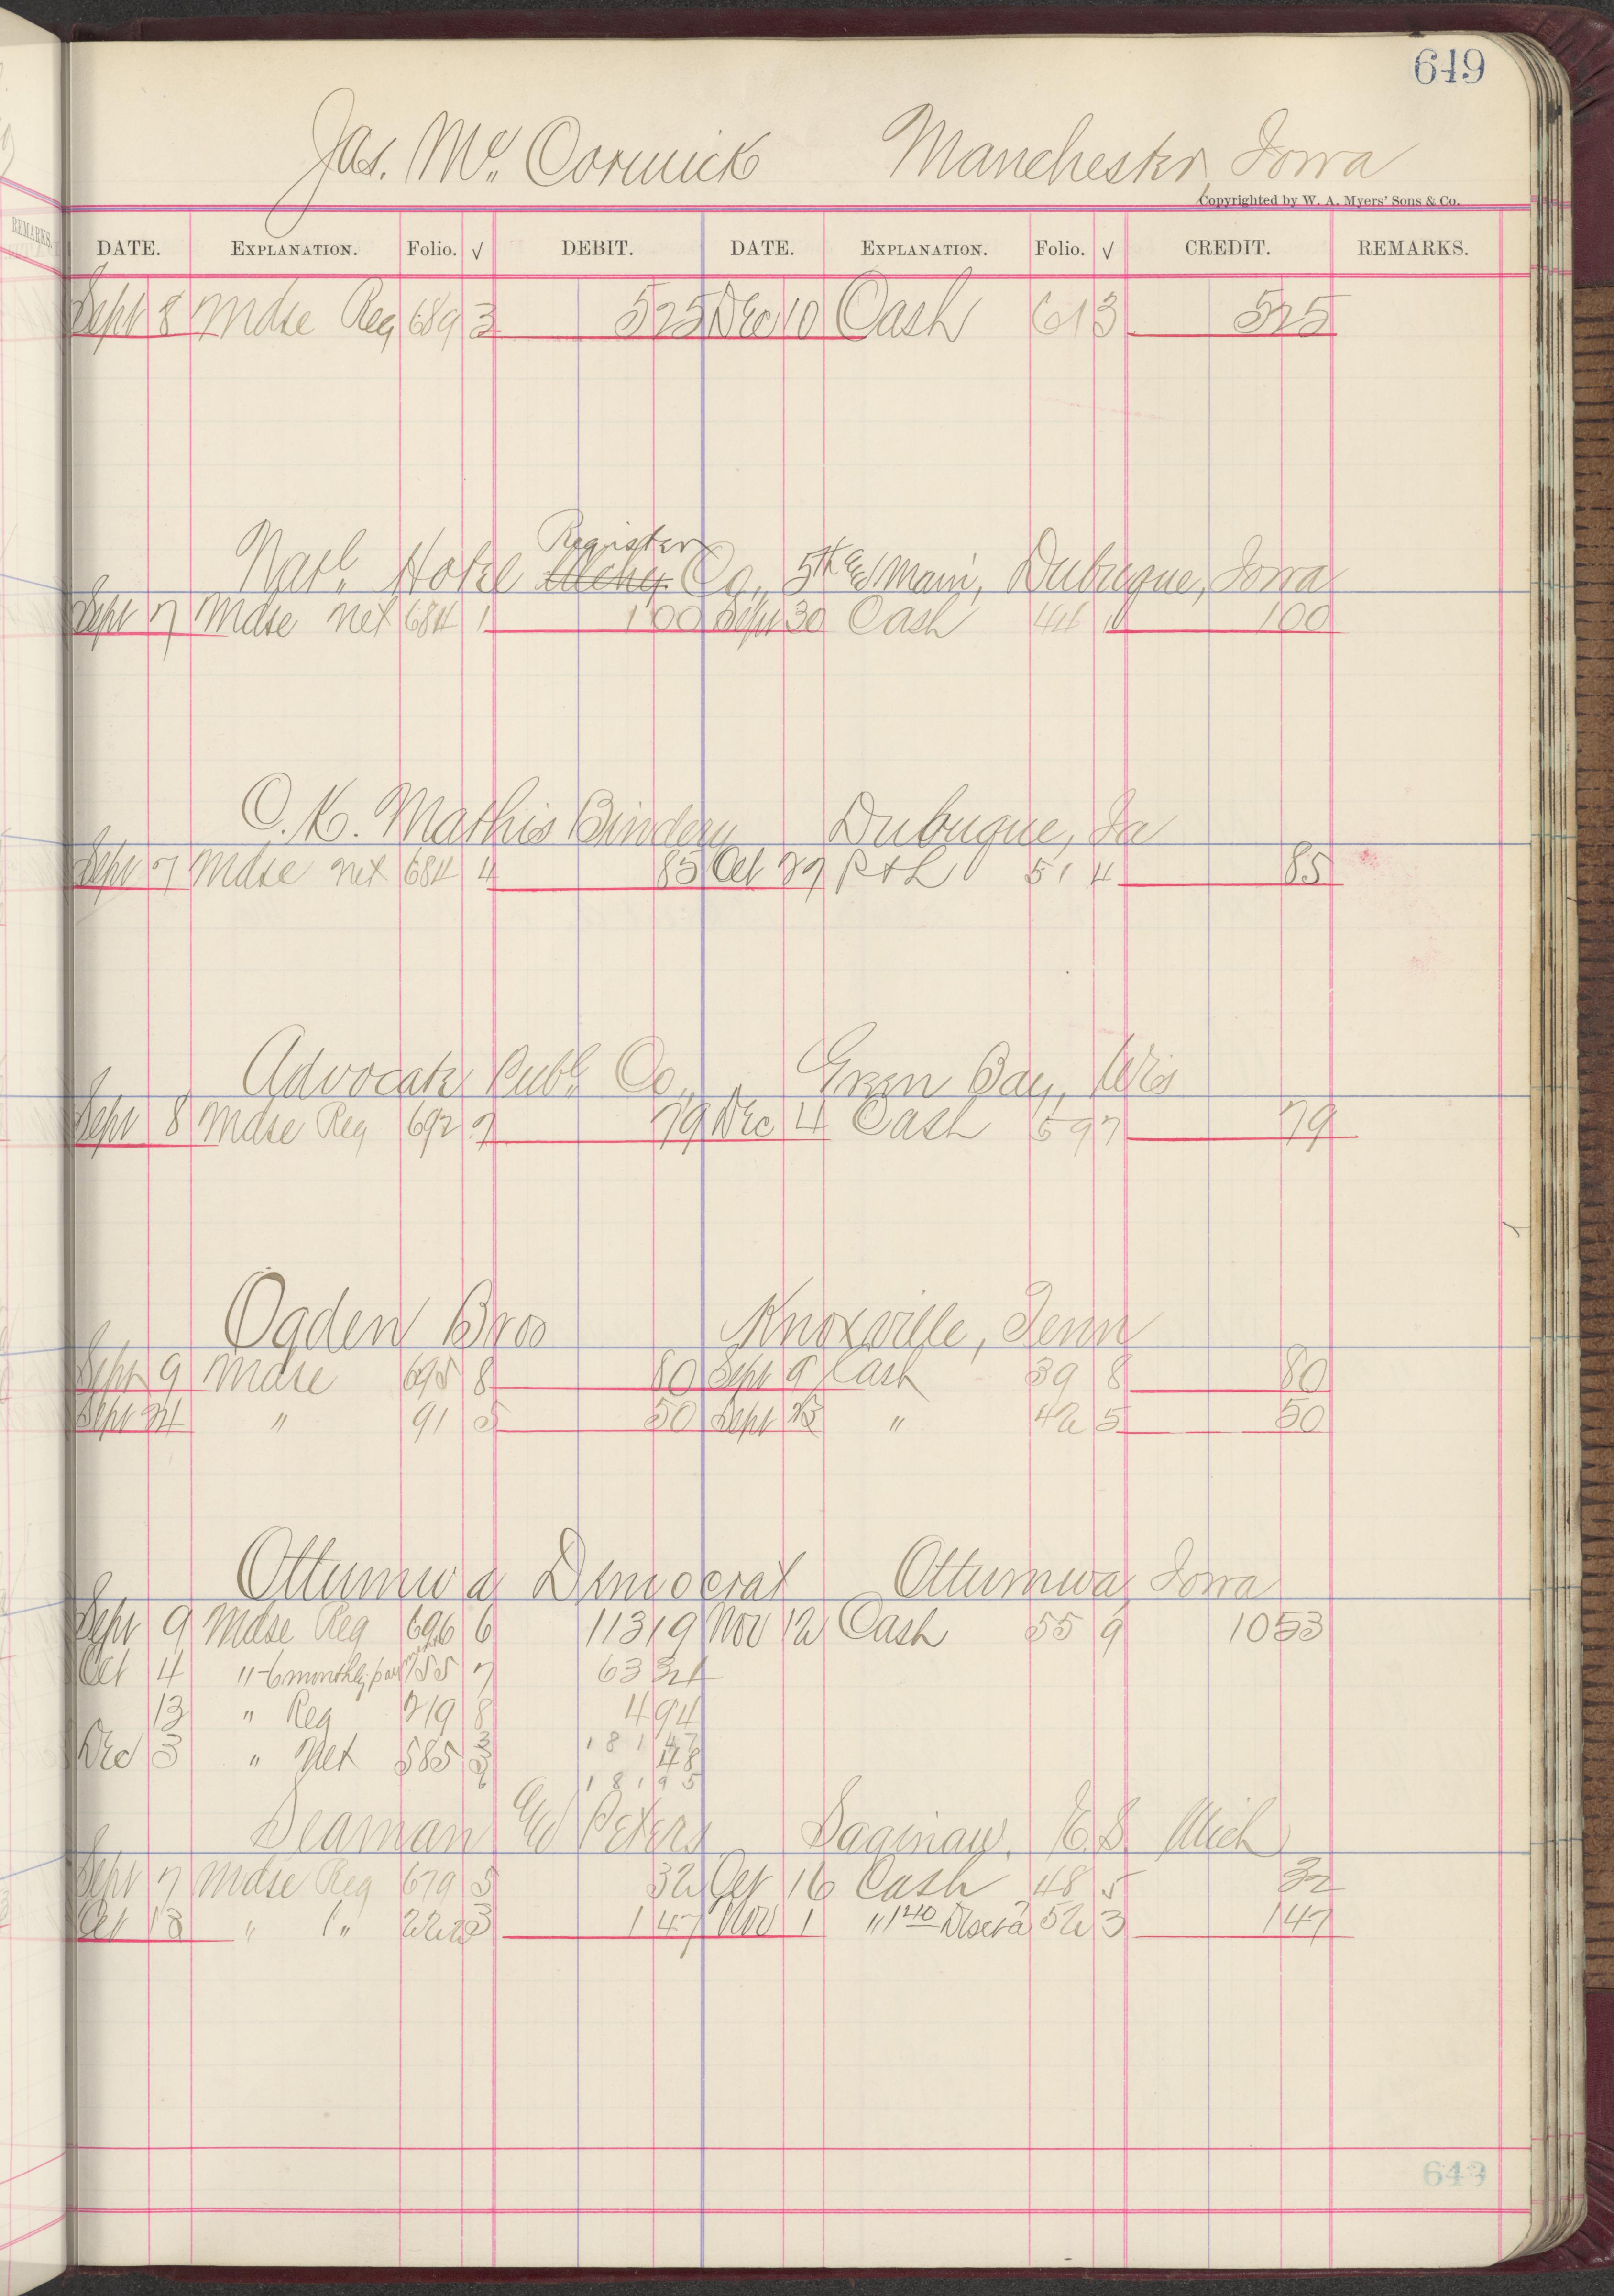 649
Jas. Mc. Cormick Manchester, Iowa
Copyrighted by W. A. Myers' Sons & Co.
DATE. EXPLANATION. Folio. √ DEBIT. DATE. EXPLANATION. Folio. √ CREDIT. REMARKS.
Sept 8 Mdse Reg 689 3 525 Dec 10 Cash 61 3 525
Register
Natl. Hotel Co., 5th & Main, Dubuque, Iowa
Sept 7 Mdse net 684 1 100 Sept 30 Cash 44 100
C. K. Mathis Bindery Dubuque, Ia
Sept 7 Mdse net 684 4 85 Oct 29 P & L 51 4 85
Advocate Publ. Co., Green Bay, Wis
Sept 8 Mdse Reg 692 7 79 Dec 4 Cash 59 7 79
Ogden Bros Knoxville, Tenn
Sept 9 Mdse 695 8 80 Sept 9 Cash 39 8 80
Sept 24 " 91 5 50 Sept 25 " 42 5 50
Ottumwa Democrat Ottumwa, Iowa
Sept 9 Mdse Reg 696 6 113 19 Nov 12 Cash 55 9 10 53
Oct 4 " 6 monthly pay 155 7 63 34
13 " Reg 219 8 4 94
181 47
Dec 3 " Net 585 3 48
181 95
Seaman & Peters Saginaw, E. S. Mich
Sept 7 Mdse Reg 679 5 32 Oct 16 Cash 48 5 32
Oct 13 " " 222 3 1 47 Nov 1 " 52 3 1 47
643
REMARKS.